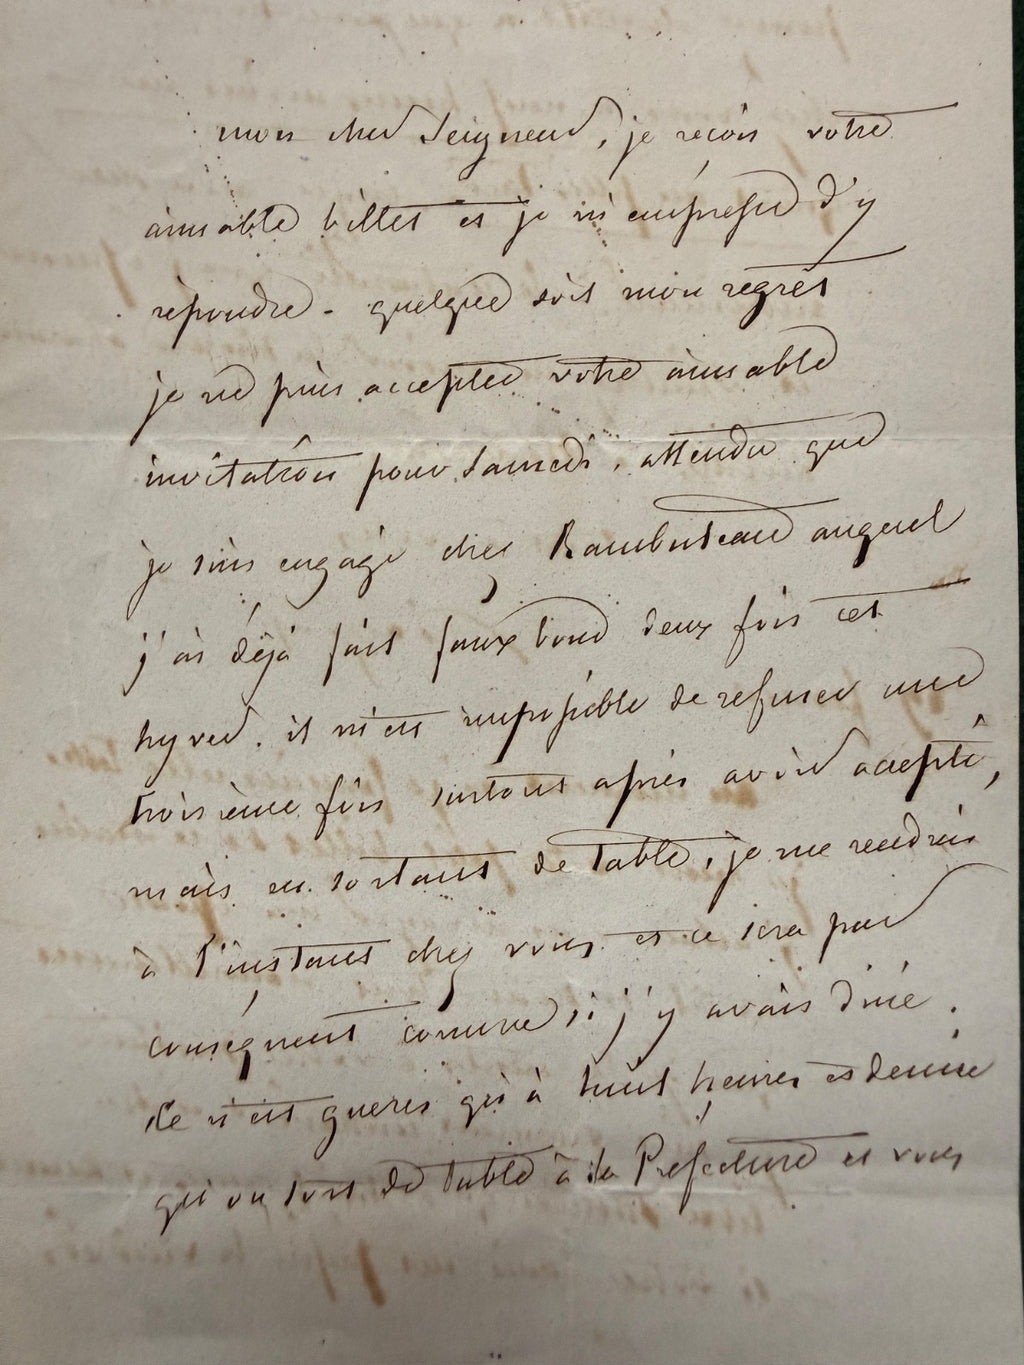 mon cher Seigneur, je reçois votre
aimable billet et je m'empresse d'y
répondre - quelque soit mon regret
je ne puis accepter votre aimable
invitation pour Samedi, attendu que
je suis engagé chez Rambuteau auquel
j'ai déjà fait faux bond deux fois cet
hyver. il m'est impossible de refuser une
troisième fois surtout après avoir accepté,
mais en sortant de table, je me rendrai
à l'instant chez vous et ce sera par
conséquent comme si j'y avais diné.
Ce n'est gueres qu'à huit heures et demie
qu'on sort de table à la Préfecture et vous